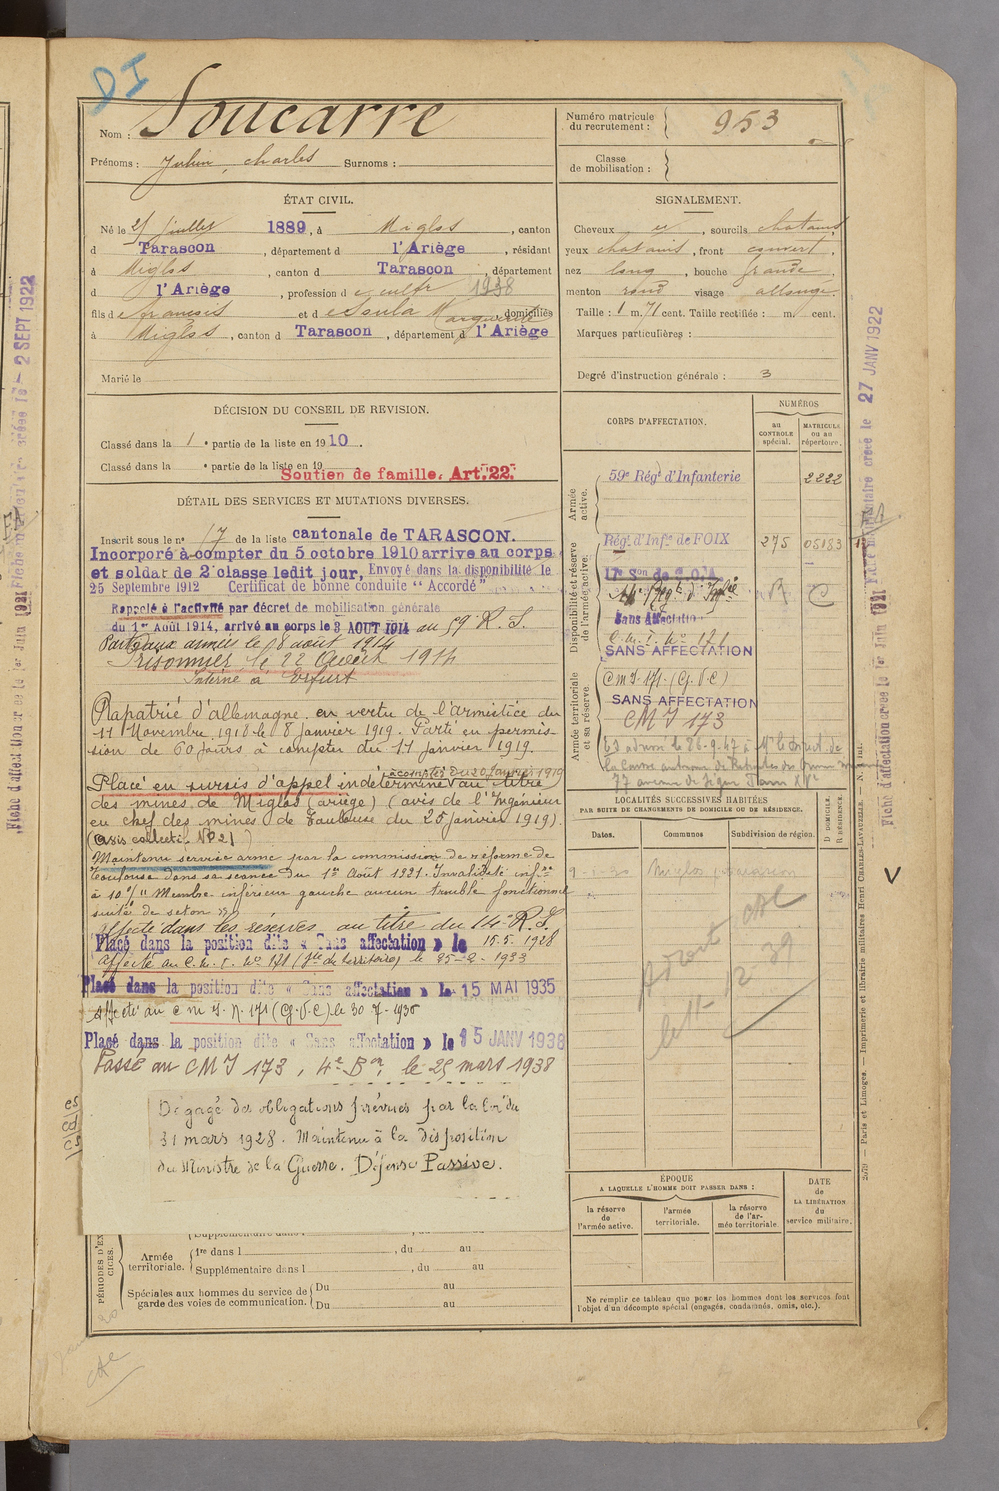 DI
Nom : Soucarre
Prénoms : Julien, Charles Surnoms :
Numéro matricule du recrutement : 953
Classe de mobilisation :
ÉTAT CIVIL.
Né le 25 juillet 1889, à Miglos, canton
d Tarascon, département d l'Ariège, résidant
à Miglos, canton d Tarascon, département
d l'Ariège, profession d cultr 1938
fils d e françois et d e Soula Marguerite domiciliés
à Miglos, canton d Tarascon, département d l'Ariège
Marié le
SIGNALEMENT.
Cheveux et, sourcils chatains,
yeux chatains, front couvert,
nez long, bouche grande,
menton rond visage allongé.
Taille : 1 m. 71 cent. Taille rectifiée : m. cent.
Marques particulières :
Degré d'instruction générale : 3
DÉCISION DU CONSEIL DE REVISION.
Classé dans la 1e partie de la liste en 1910.
Classé dans la e partie de la liste en 19
Soutien de famille. Art. 22.
DÉTAIL DES SERVICES ET MUTATIONS DIVERSES.
Inscrit sous le no 17 de la liste cantonale de TARASCON.
Incorporé à compter du 5 octobre 1910 arrive au corps
et soldat de 2e classe ledit jour, Envoyé dans la disponibilité le
25 Septembre 1912 Certificat de bonne conduite "Accordé"
Rappelé à l'activité par décret de mobilisation générale
du 1er Août 1914, arrivé au corps le 3 AOUT 1914 au 59e R. I.
Parti aux armées le 8 août 1914
Prisonnier le 22 Août 1914
Interné à Erfurt
Rapatrié d'allemagne en vertu de l'armistice du
11 Novembre 1918 le 8 janvier 1919. Parti en permis-
sion de 60 jours à compter du 17 janvier 1919.
à compter du 20 Janvier 1919
Placé en sursis d'appel indéterminé au titre
des mines de Miglos (ariège) (avis de l'Ingénieur
en chef des mines de Toulouse du 25 janvier 1919).
(avis collectif No P 21)
Maintenu service armé par la commission de réforme de
Toulouse dans sa séance du 1er Août 1921. Invalidité infre
à 10 % Membre inférieur gauche aucun trouble fonctionnel
suite de seton
Affecté dans les réserves au titre du 14e R. I.
Placé dans la position dite « Sans affectation » le 15.5.1928
Affecté au C.M.I. No 171 (Ste de territoire) le 25-2-1933
Placé dans la position dite « Sans affectation » le 15 MAI 1935
Affecté au C M I. N. 171 (G.V.C) le 30-7-1935
Placé dans la position dite « Sans affectation » le 15 JANV 1938
Passé au CMI 173, 4e Bon, le 25 mars 1938
Dégagé des obligations prévues par la loi du
31 mars 1928. Maintenu à la disposition
du Ministre de la Guerre. Défense Passive.
CORPS D'AFFECTATION.
NUMÉROS
au CONTROLE spécial.
MATRICULE ou au répertoire.
Armée active.
59e Régt d'Infanterie 2222
Disponibilité et réserve de l'armée active.
Régt d'Infie de FOIX 275 05183
17e Son de C.O.A
Sans Affectation
C.M.I. No 171
SANS AFFECTATION
Armée territoriale et sa réserve
C M I. 171. (G.V.C)
SANS AFFECTATION
CMI 173
LOCALITÉS SUCCESSIVES HABITÉES
PAR SUITE DE CHANGEMENTS DE DOMICILE OU DE RÉSIDENCE.
Dates. Communes Subdivision de région.
D DOMICILE. R RÉSIDENCE.
Miglos, Tarascon
ÉPOQUE
A LAQUELLE L'HOMME DOIT PASSER DANS :
la réserve de l'armée active.
l'armée territoriale.
la réserve de l'armée territoriale.
DATE de LA LIBÉRATION du service militaire.
Ne remplir ce tableau que pour les hommes dont les services font
l'objet d'un décompte spécial (engagés, condamnés, omis, etc.).
PÉRIODES D'EXERCICES.
Supplémentaire dans l , du au
Armée territoriale.
1re dans l , du au
Supplémentaire dans l , du au
Spéciales aux hommes du service de garde des voies de communication.
Du au
Du au
27 JANV 1922
Fiche d'affectation créée le 1er Juin 1921
2 SEPT 1922
2079 — Paris et Limoges. — Imprimerie et librairie militaires Henri CHARLES-LAVAUZELLE.